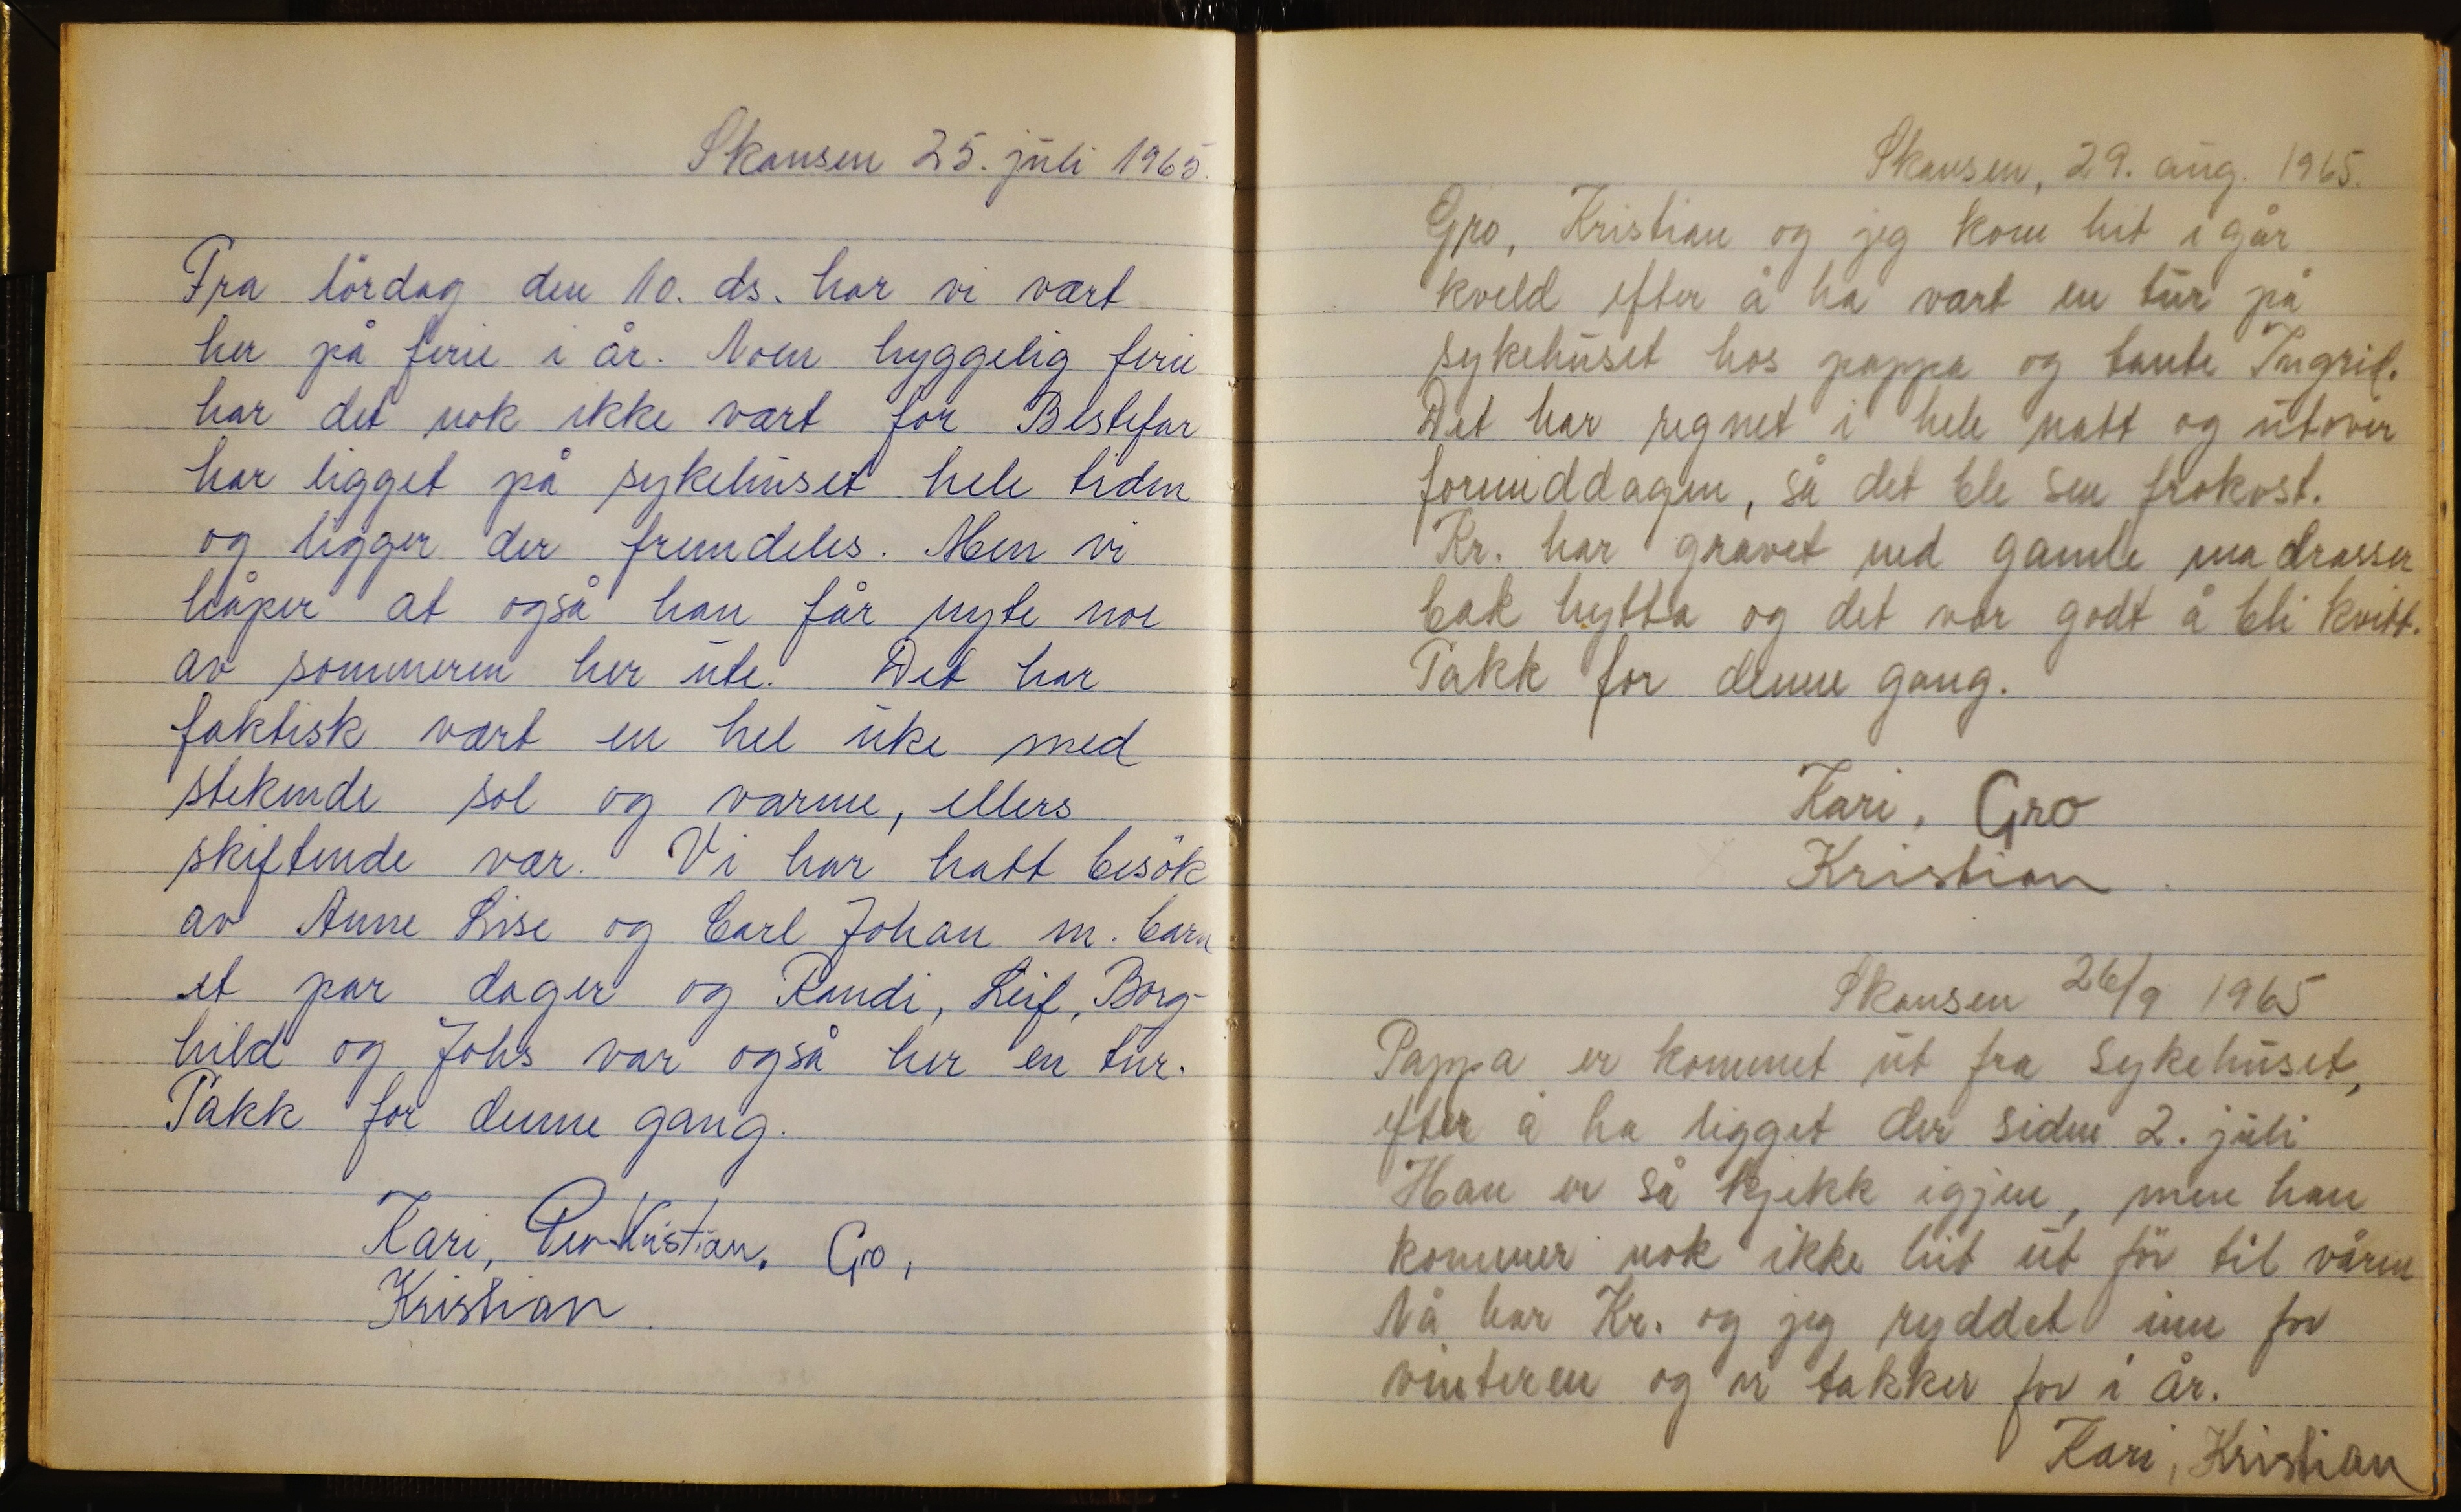 Skansen 25. juli 1965.
Fra lördag den 10. ds. har vi vært
her på ferie i år. Noen hyggelig ferie
har det nok ikke vært for Bestefar
har ligget på sykehuset hele tiden
og ligger der fremdeles. Men vi
håper at også han får nyte noe
av sommeren her ute. Det har
faktisk vært en hel uke med
stekende sol og varme, ellers
skiftende vær. Vi har hatt besök
av Anne Lise og Carl Johan m. barn
et par dager og Randi, Leif, Borg-
hild og Johs var også her en tur.
Takk for denne gang.
Kari, Per Kristian, Gro,
Kristian.
Skansen, 29. aug. 1965.
Gro, Kristian og jeg kom hit i går
kveld efter å ha vært en tur på
sykehuset hos pappa og tante Ingrid.
Det har regnet i hele natt og utover
formiddagen, så det ble sen frokost.
Kr. har gravet ned gamle madrasser
bak hytta og det var godt å bli kvitt.
Takk for denne gang.
Kari, Gro
Kristian.
Skansen 26/9 1965
Pappa er kommet ut fra sykehuset,
efter å ha ligget der siden 2. juli
Han er så kjekk igjen, men han
kommer nok ikke hit ut för til våren
Nå har Kr. og jeg ryddet inn for
vinteren og vi takker for i år.
Kari, Kristian